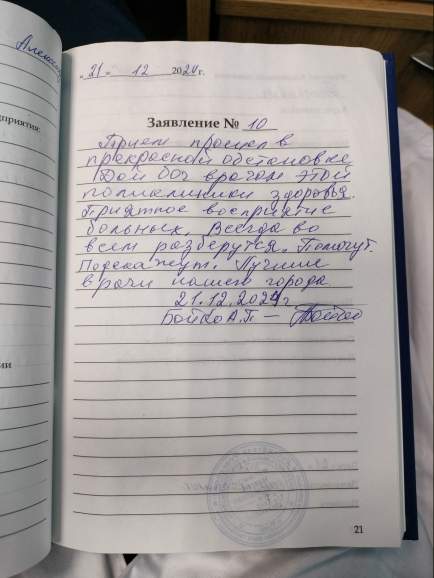 Алексан
дприятия:
ии
"21" 12 2024 г.
Заявление № 10
Прием прошел в
прекрасной обстановке
Дай бог врачам этой
поликлиники здоровья.
Приятное восприятие
больных. Всегда во
всем разберутся. Помогут.
Подскажут. Лучшие
врачи нашего города
21.12.2024г
Бойко А.П —
21